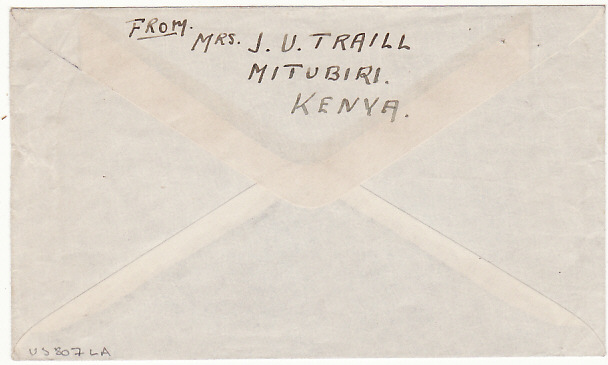 FROM.
MRS. J. U. TRAILL
MITUBIRI.
KENYA.
US 807 LA